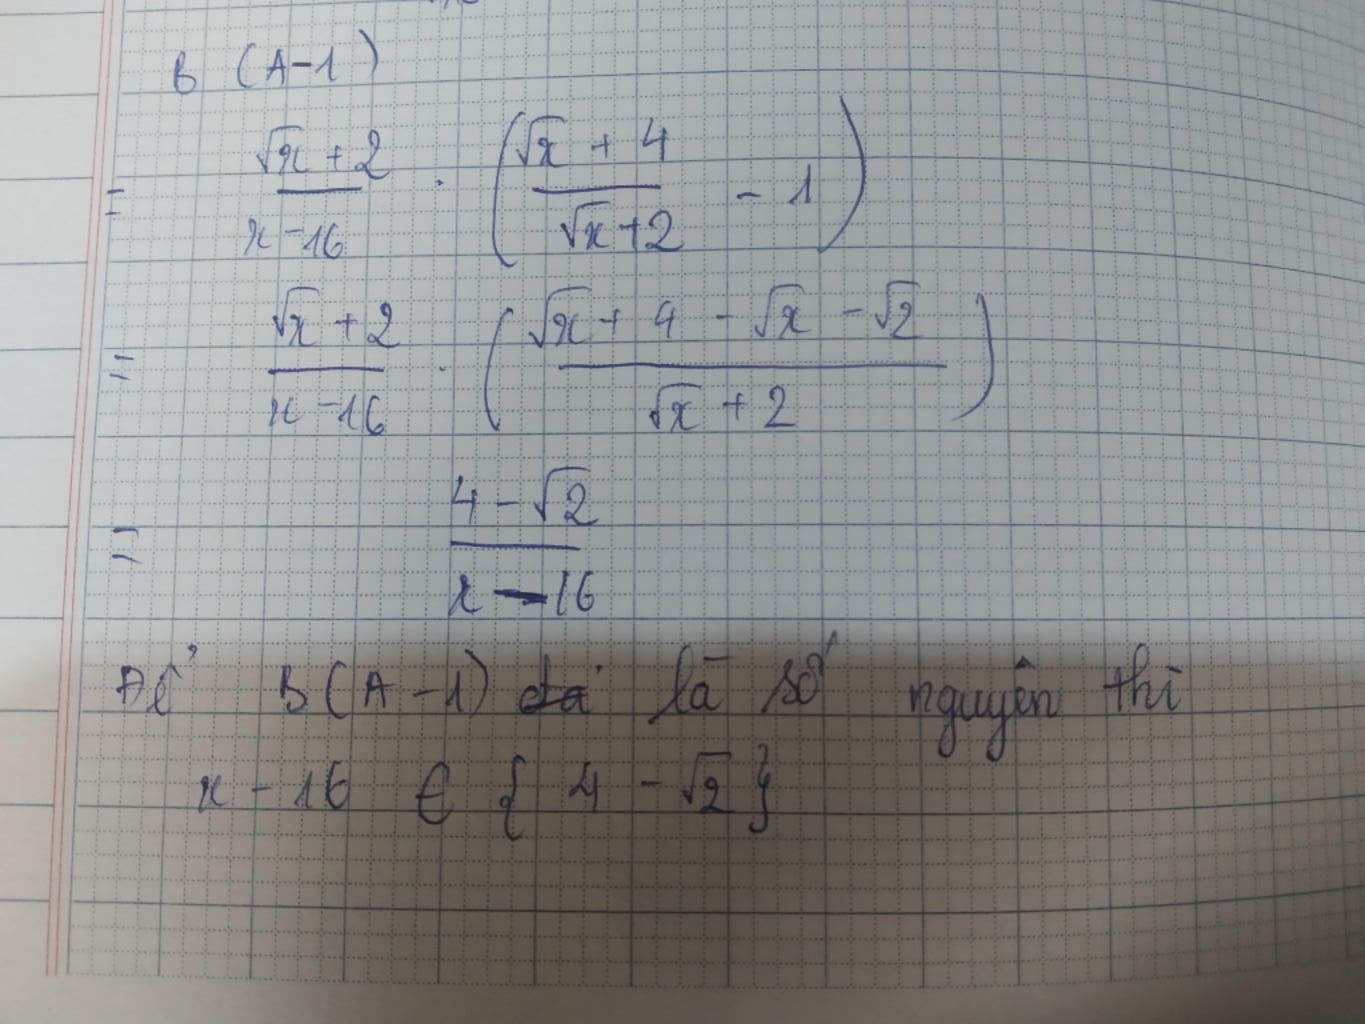 B (A-1)
= √x + 2 / x - 16 . ( √x + 4 / √x + 2 - 1 )
= √x + 2 / x - 16 . ( √x + 4 - √x - √2 / √x + 2 )
= 4 - √2 / x - 16
Để B(A-1) là số nguyên thì
x - 16 ∈ { 4 - √2 }